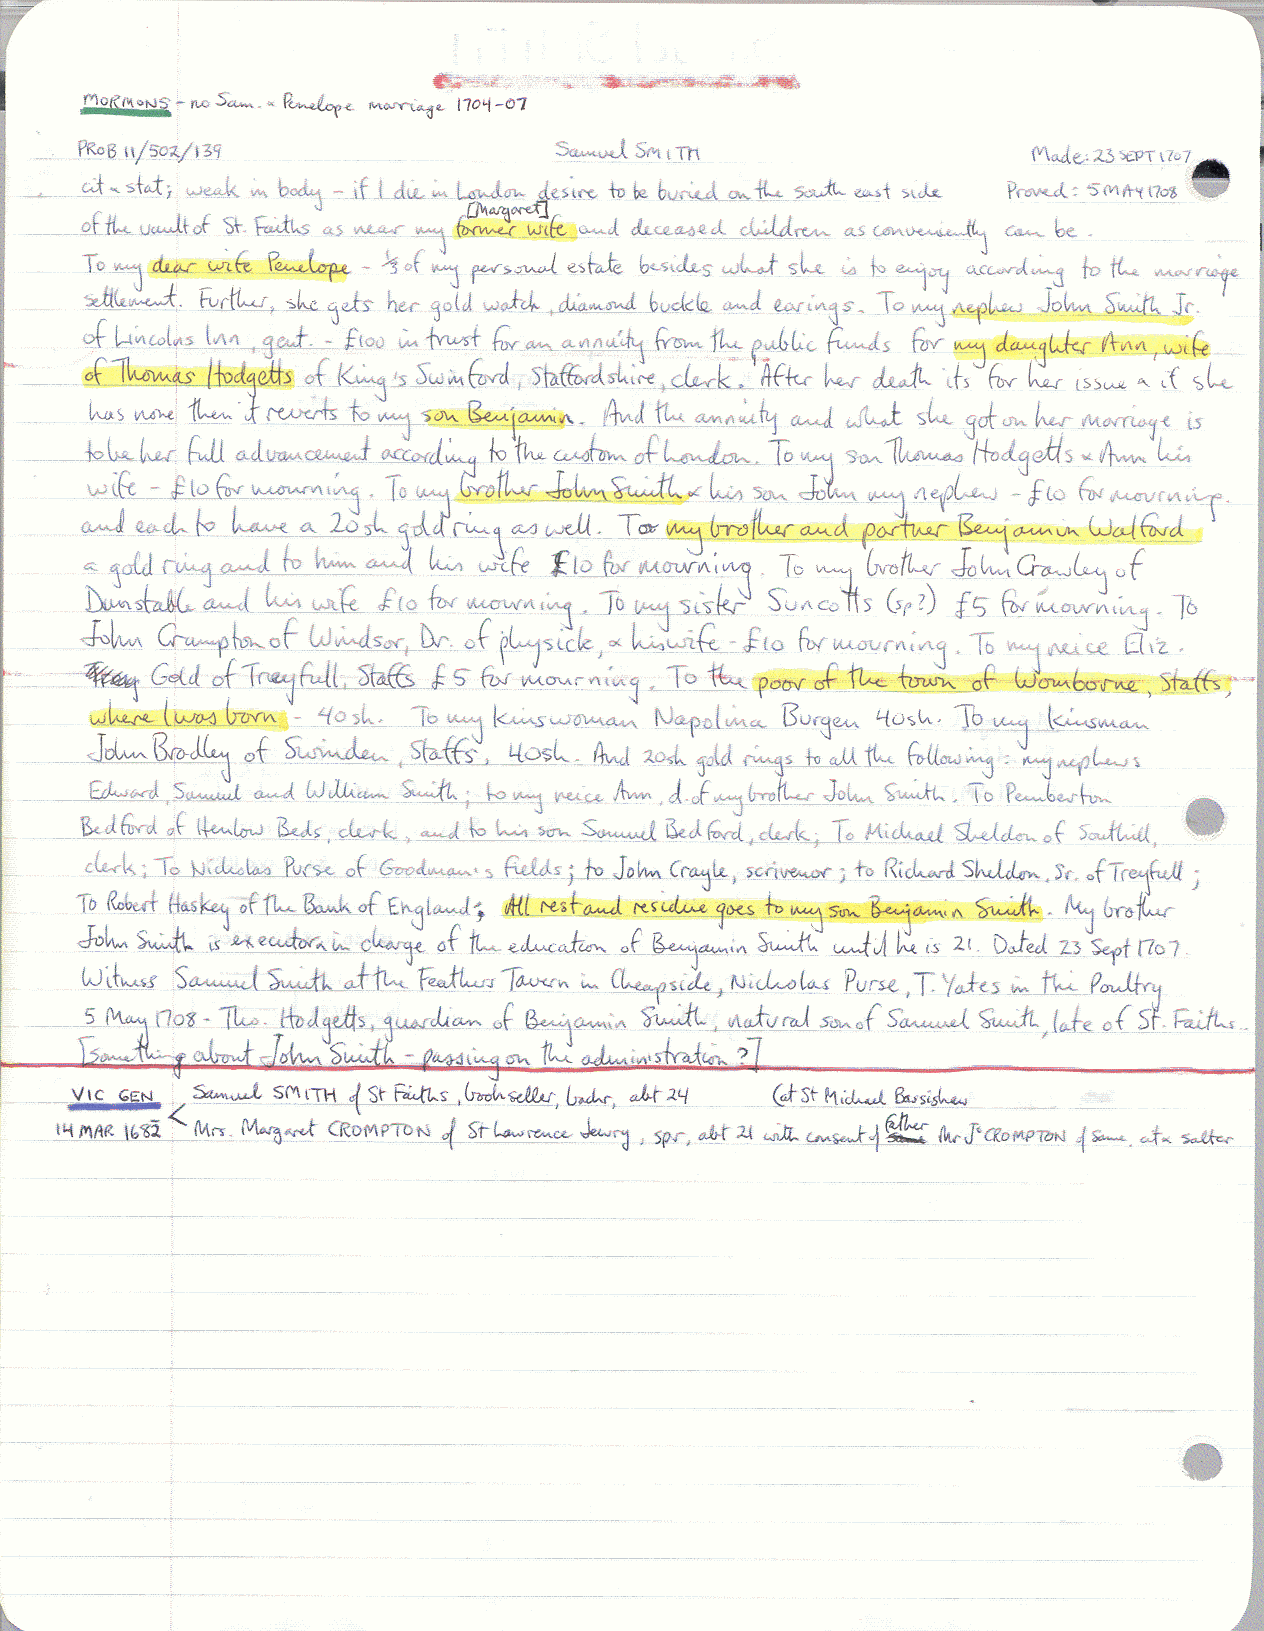 MORMONS - no Sam. & Penelope marriage 1704-07
PROB 11/502/139 Samuel SMITH Made: 23 SEPT 1707
cit & stat; weak in body - if I die in London desire to be buried on the south east side Proved: 5 MAY 1708
[Margaret]
of the vault of St. Faiths as near my former wife and deceased children as conveniently can be.
To my dear wife Penelope - 1/3 of my personal estate besides what she is to enjoy according to the marriage
settlement. Further, she gets her gold watch, diamond buckle and earings. To my nephew John Smith Jr.
of Lincolns Inn, gent. - £100 in trust for an annuity from the public funds for my daughter Ann, wife
of Thomas Hodgetts of King's Swinford, Staffordshire, clerk. After her death its for her issue & if she
has none then it reverts to my son Benjamin. And the annuity and what she got on her marriage is
to be her full advancement according to the custom of London. To my son Thomas Hodgetts & Ann his
wife - £10 for mourning. To my brother John Smith & his son John my nephew - £10 for mourning.
and each to have a 20sh gold ring as well. To my brother and partner Benjamin Walford
a gold ring and to him and his wife £10 for mourning. To my brother John Crawley of
Dunstable and his wife £10 for mourning. To my sister Suncotts (sp?) £5 for mourning. To
John Crumpton of Windsor, Dr. of physick, & his wife - £10 for mourning. To my neice Eliz.
Gold of Treyfull, Staffs £5 for mourning. To the poor of the town of Womborne, Staffs,
where I was born - 40sh. To my kinswoman Napolina Burgen 40sh. To my kinsman
John Bradley of Swinden, Staffs, 40sh. And 20sh gold rings to all the following: my nephews
Edward, Samuel and William Smith; to my neice Ann, d. of my brother John Smith. To Pemberton
Bedford of Henlow Beds, clerk, and to his son Samuel Bedford, clerk; To Michael Sheldon of Southill,
clerk; To Nicholas Purse of Goodman's Fields; to John Crayle, scrivenor; to Richard Sheldon, Sr. of Treyfull;
To Robert Haskey of the Bank of England; All rest and residue goes to my son Benjamin Smith. My brother
John Smith is executor in charge of the education of Benjamin Smith until he is 21. Dated 23 Sept 1707.
Witness Samuel Smith at the Feathers Tavern in Cheapside, Nicholas Purse, T. Yates in the Poultry
5 May 1708 - Tho. Hodgetts, guardian of Benjamin Smith, natural son of Samuel Smith, late of St. Faiths..
[Something about John Smith - passing on the administration?]
VIC GEN Samuel SMITH of St Faiths, bookseller, bachr, abt 24 (at St Michael Bassishaw
14 MAR 1682 Mrs. Margaret CROMPTON of St Lawrence Jewry, spr, abt 21 with consent of father Mr Jo CROMPTON of same, cit & salter